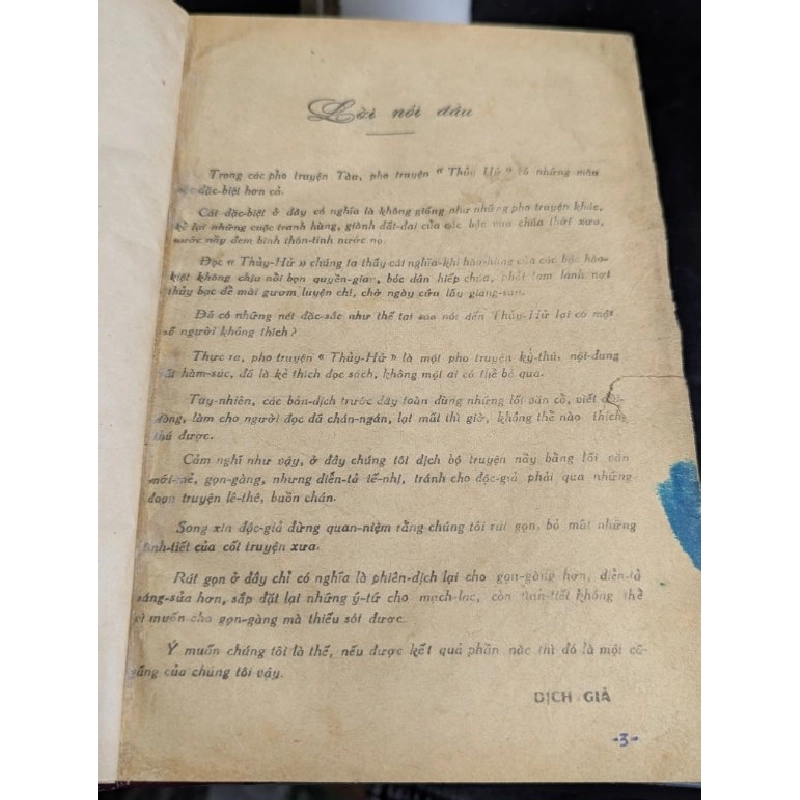 Lời nói đầu
Trong các pho truyện Tàu, pho truyện « Thủy Hử » có những màu
đặc-biệt hơn cả.
Cái đặc-biệt ở đây có nghĩa là không giống như những pho truyện khác,
kể lại những cuộc tranh hùng, giành đất-đai của các bậc vua chúa thời xưa,
nước nầy đem binh thôn-tính nước nọ.
Đọc « Thủy-Hử » chúng ta thấy cái nghĩa-khí hào-hùng của các bậc hào-
kiệt không chịu nổi bọn quyền-gian, bóc dân hiếp chúa, phải tạm lánh nơi
thủy bạc để mài gươm luyện chí, chờ ngày cứu lấy giang-san.
Đã có những nét đặc-sắc như thế tại sao nói đến Thủy-Hử lại có một
số người không thích ?
Thực ra, pho truyện « Thủy-Hử » là một pho truyện kỳ-thú, nội-dung
hàm-súc, đã là kẻ thích đọc sách, không một ai có thể bỏ qua.
Tuy-nhiên, các bản-dịch trước đây toàn dùng những lối văn cổ, viết dài-
dòng, làm cho người đọc đã chán-ngán, lại mất thì giờ, không thể nào thích
thú được.
Cảm nghĩ như vậy, ở đây chúng tôi dịch bộ truyện nầy bằng lối văn
mới-mẻ, gọn-gàng, nhưng diễn-tả tế-nhị, tránh cho độc-giả phải qua những
đoạn truyện lê-thê, buồn chán.
Song xin độc-giả đừng quan-niệm rằng chúng tôi rút gọn, bỏ mất những
tình-tiết của cốt truyện xưa.
Rút gọn ở đây chỉ có nghĩa là phiên-dịch lại cho gọn-gàng hơn, diễn-tả
sáng-sủa hơn, sắp đặt lại những ý-tứ cho mạch-lạc, còn tình-tiết không thể
vì muốn cho gọn-gàng mà thiếu sót được.
Ý muốn chúng tôi là thế, nếu được kết quả phần nào thì đó là một cố-
gắng của chúng tôi vậy.
DỊCH GIẢ
-3-